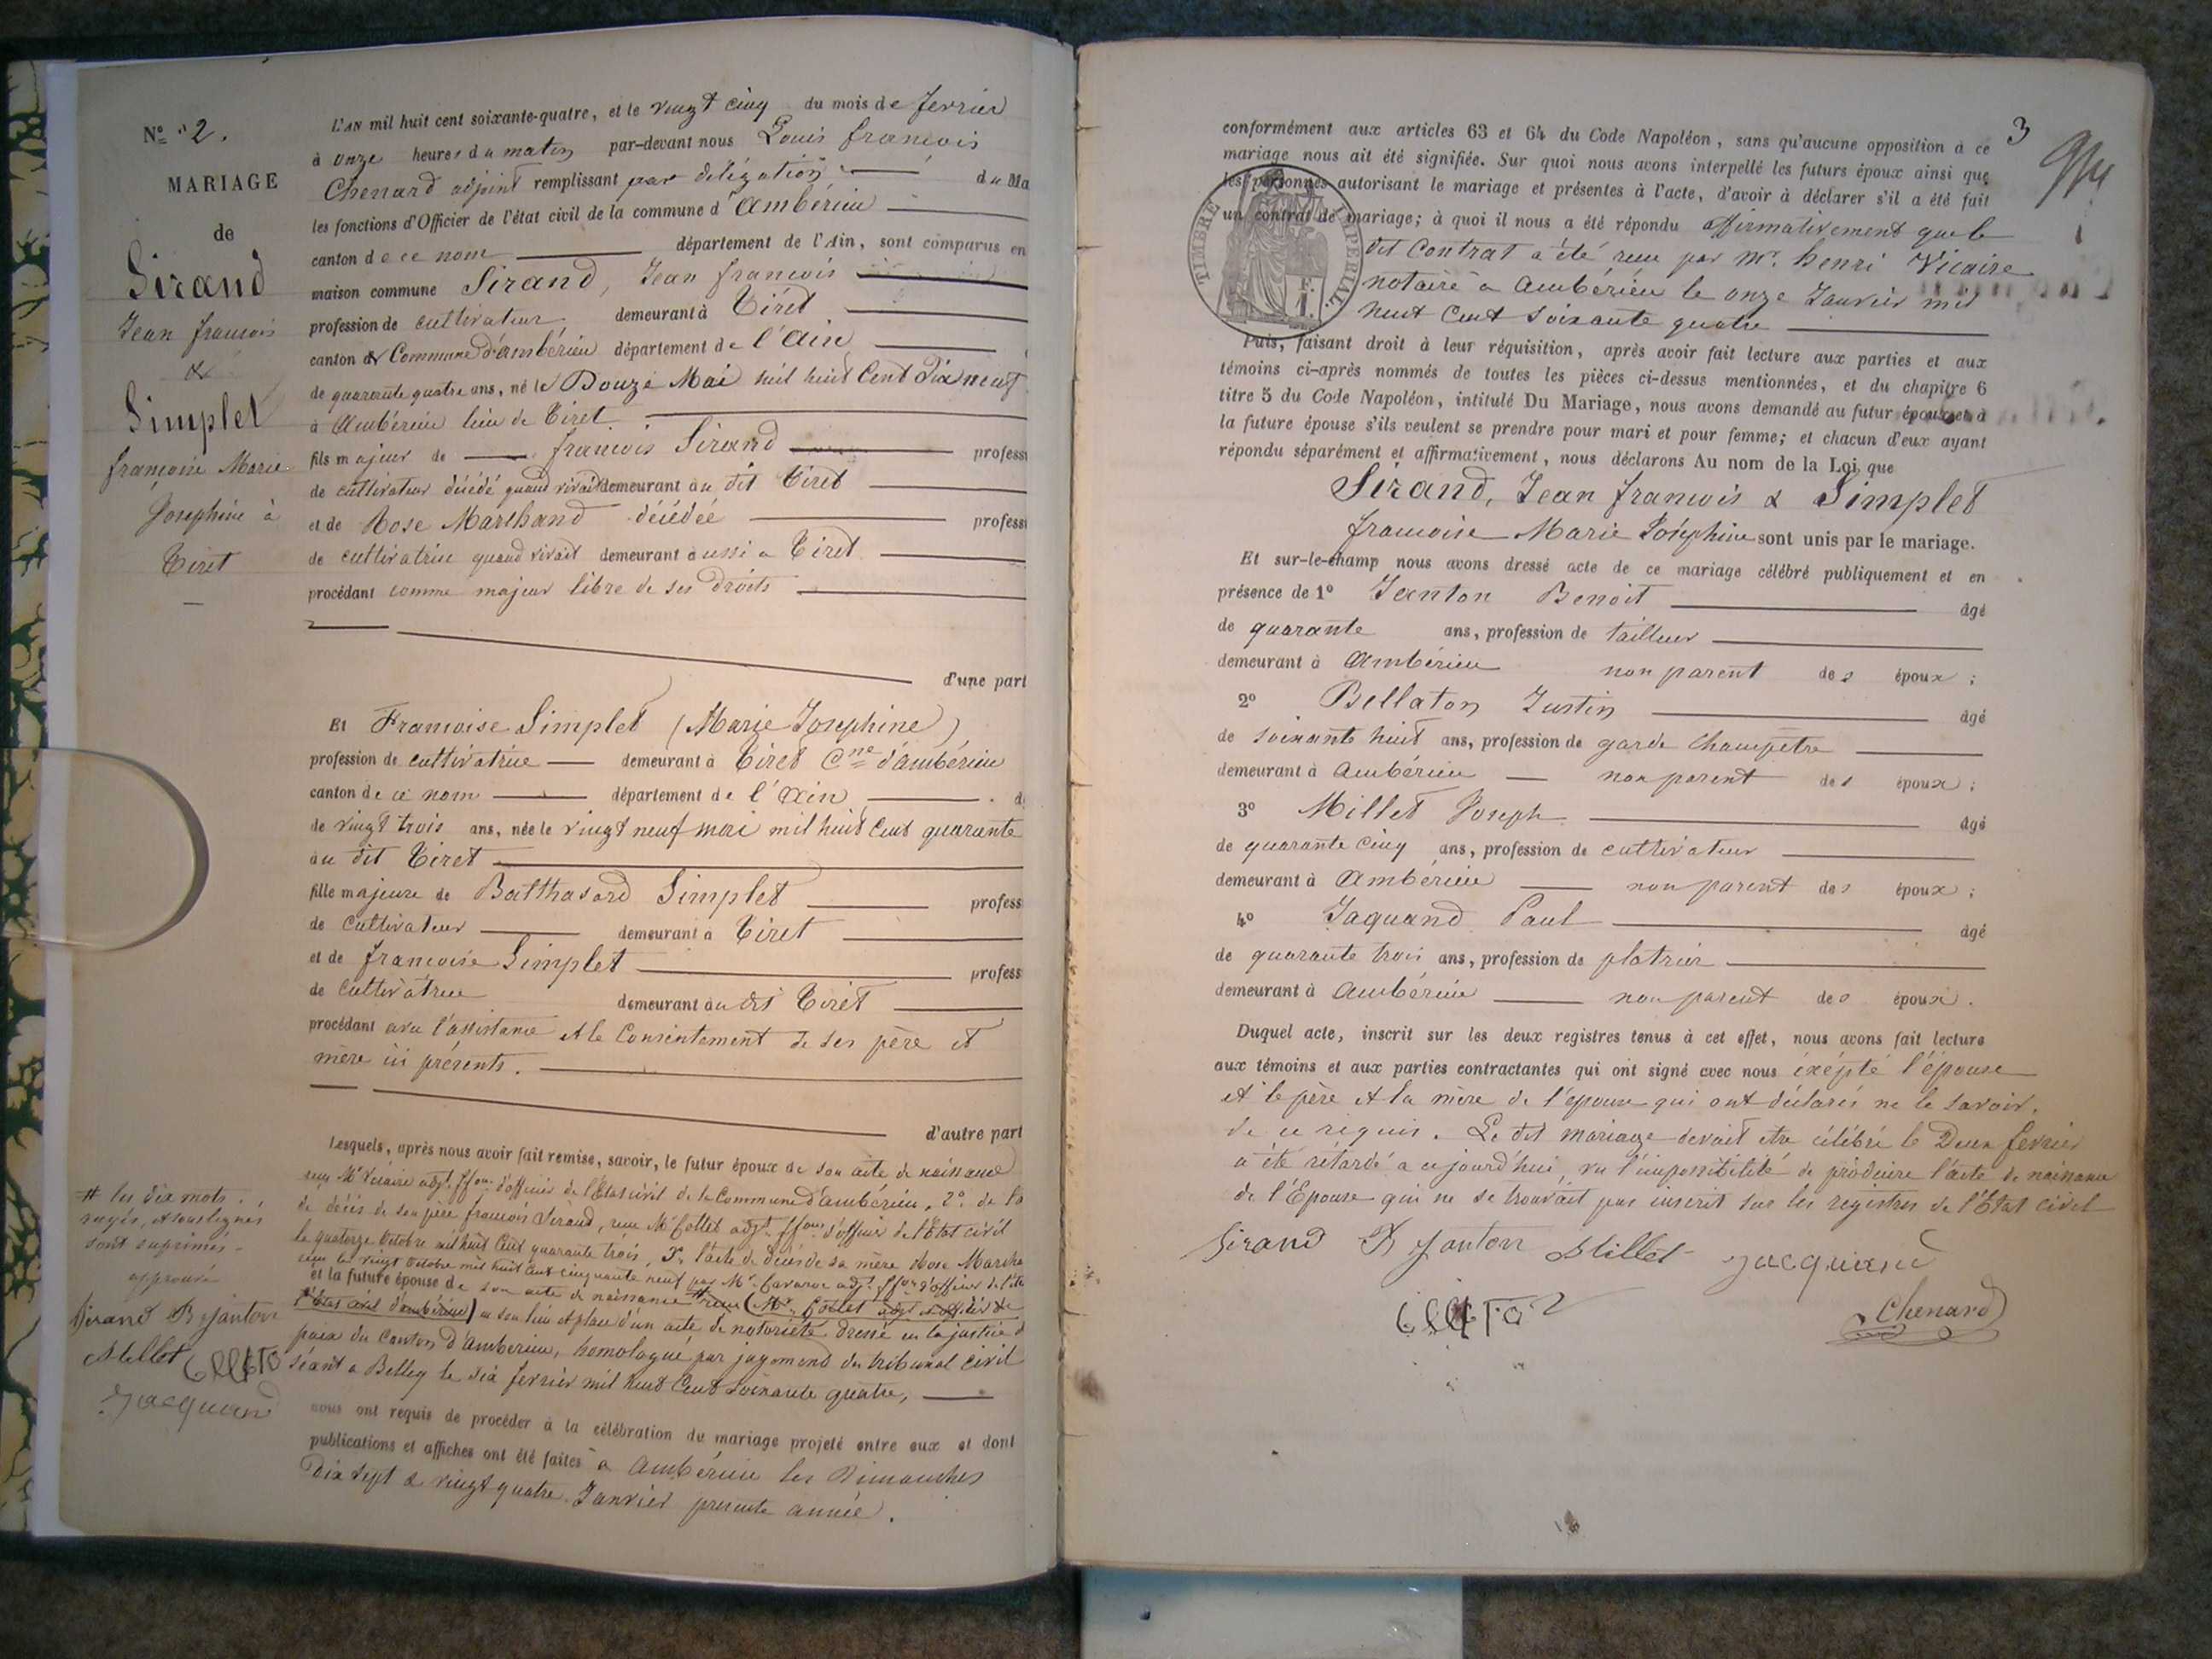 No 2.
MARIAGE
de
Sirand
Jean francois
&
Simplet
françoise Marie
Josephine à
Tiret
L'AN mil huit cent soixante-quatre, et le vingt cinq du mois de fevrier
à onze heures du matin par-devant nous Louis francois
Chenard adjoint remplissant par délégation du Ma
les fonctions d'Officier de l'état civil de la commune d'Ambérieu
canton de ce nom département de l'Ain, sont comparus en
maison commune Sirand, Jean francois
profession de cultivateur demeurant à Tiret
canton & Commune d'ambérieu département de l'Ain
de quarante quatre ans, né le Douze Mai mil huit Cent Dix neuf
à Ambérieu lieu de Tiret
fils majeur de francois Sirand profess
de cultivateur décédé quand vivait demeurant au dit Tiret
et de Rose Marchand décédée profess
de cultivatrice quand vivait demeurant aussi a Tiret
procédant comme majeur libre de ses droits
d'une part
Et Francoise Simplet (Marie Josephine)
profession de cultivatrice demeurant à Tiret Cne d'ambérieu
canton de ce nom département de l'Ain d
de vingt trois ans, née le vingt neuf mai mil huit Cent quarante
au dit Tiret
fille majeure de Balthasard Simplet profess
de Cultivateur demeurant à Tiret
et de francoise Simplet profess
de Cultivatrice demeurant au dit Tiret
procédant avec l'assistance et le Consentement de ses père et
mère ici présents.
d'autre part
Lesquels, après nous avoir fait remise, savoir, le futur époux de son acte de naissance
reçu Mr Vicaire adjt ffons d'officier de l'Etat civil de la Commune d'ambérieu, 2o de la
de décès de son père francois Sirand, reçu Mr Collet adjt ffons d'officier de l'Etat civil
le quatorze octobre mil huit Cent quarante trois, 3o l'acte de décès de sa mère Rose Marcha
reçu le vingt octobre mil huit Cent cinquante neuf par Mr adjt ffons d'officier de l'éta
et la future épouse de son acte de naissance # reçu (Mr Collet adjt officier de
l'Etat civil d'ambérieu) a son lieu et place d'un acte de notoriété dressé en la justice d
paix du Canton d'Ambérieu, homologué par jugement du tribunal civil
séant a Belley le dix fevrier mil huit Cent soixante quatre,
nous ont requis de procéder à la célébration du mariage projeté entre eux et dont
publications et affiches ont été faites à Ambérieu les Dimanches
Dix sept & vingt quatre Janvier presente année.
# les dix mots
rayés, et soulignés
sont suprimés
approuvé
Sirand B Janton
Millet
Jacquand
3
conformément aux articles 63 et 64 du Code Napoléon, sans qu'aucune opposition à ce
mariage nous ait été signifiée. Sur quoi nous avons interpellé les futurs époux ainsi que
les personnes autorisant le mariage et présentes à l'acte, d'avoir à déclarer s'il a été fait
un contrat de mariage; à quoi il nous a été répondu affirmativement que le
dit Contrat a été reçu par Mr. henri Vicaire
notaire à Ambérieu le onze Janvier mil
huit Cent soixante quatre
TIMBRE IMPERIAL.
F.
1.
Puis, faisant droit à leur réquisition, après avoir fait lecture aux parties et aux
témoins ci-après nommés de toutes les pièces ci-dessus mentionnées, et du chapitre 6
titre 5 du Code Napoléon, intitulé Du Mariage, nous avons demandé au futur époux et à
la future épouse s'ils veulent se prendre pour mari et pour femme; et chacun d'eux ayant
répondu séparément et affirmativement, nous déclarons Au nom de la Loi, que
Sirand, Jean francois & Simplet
francoise Marie Joséphine sont unis par le mariage.
Et sur-le-champ nous avons dressé acte de ce mariage célébré publiquement et en
présence de 1o Janton Benoit âgé
de quarante ans, profession de tailleur
demeurant à Ambérieu non parent des époux;
2o Bellaton Justin âgé
de soixante huit ans, profession de garde Champêtre
demeurant à Ambérieu non parent des époux;
3o Millet Joseph âgé
de quarante cinq ans, profession de cultivateur
demeurant à Ambérieu non parent des époux;
4o Jaquand Paul âgé
de quarante trois ans, profession de platrier
demeurant à Ambérieu non parent des époux.
Duquel acte, inscrit sur les deux registres tenus à cet effet, nous avons fait lecture
aux témoins et aux parties contractantes qui ont signé avec nous éxépté l'épouse
et le père et la mère de l'épouse qui ont déclarés ne le savoir,
de ce requis. Le dit mariage devait etre célébré le Deux fevrier
a été rétardé a ce jourd'hui, vu l'impossibilité de produire l'acte de naissance
de l'Epouse qui ne se trouvait pas inscrit sur les registres de l'Etat civil
Sirand B Janton Millet Jacquand
Chenard